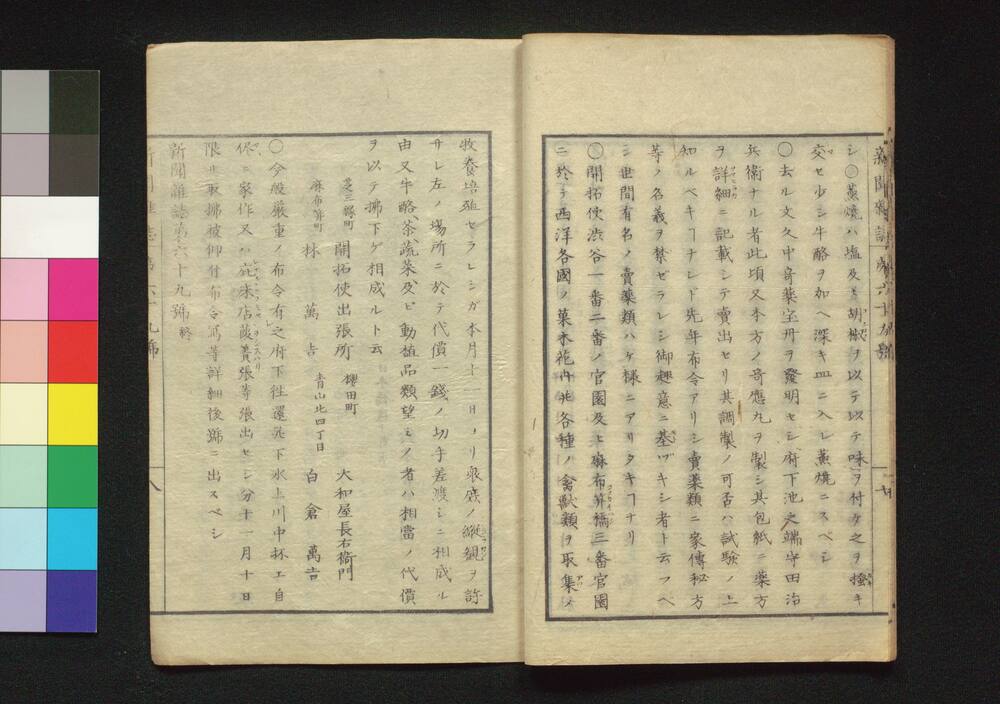 シ〇蒸焼ハ塩及ヒ胡椒ヲ以テ味ヲ付ケ之ヲ搔キ
交セ少シ牛酪ヲ加ヘ深キ皿ニ入レ蒸焼ニスベシ
〇去ル文久中奇薬宝丹ヲ發明セシ府下池之端守田治
兵衛ナル者此頃又本方ノ奇應丸ヲ製シ其包紙ニ薬方
ヲ詳細ニ記載シテ賣出セリ其調製ノ可否ハ試験ノ上
知ルベキヿナレド先年布令アリシ賣薬類ニ家傳秘方
等ノ名義ヲ禁ゼラレシ御趣意ニ基ヅキシ者ト云フヘ
シ世間有名ノ賣薬類ハケ様ニアリタキヿナリ
〇開拓使渋谷一番二番ノ官園及ヒ麻布笄橋三番官園
ニ於テ西洋各國ノ菓木花卉其各種ノ禽獸類ヲ取集メ
牧養培殖セラレシガ本月十一日ヨリ衆庶ノ縱観ヲ許
サレ左ノ場所ニ於テ代價一錢ノ切手差渡シニ相成ル
由又牛酪茶蔬菜及ビ動植品類望ミノ者ハ相當ノ代價
ヲ以テ拂下ゲ相成ルト云
芝三縁町 開拓使出張所 櫻田町 大和屋長右衛門
麻布笄町 林萬吉 青山北四丁目 白倉萬吉
〇今般厳重ノ布令有之府下往還
下水上川中杯エ自
保ニ家作又ハ
床店葭簀張等張出セシ分十一月十日
限止取拂被仰付布令寫等詳細後號ニ出スベシ
新聞雜誌第六十九號終